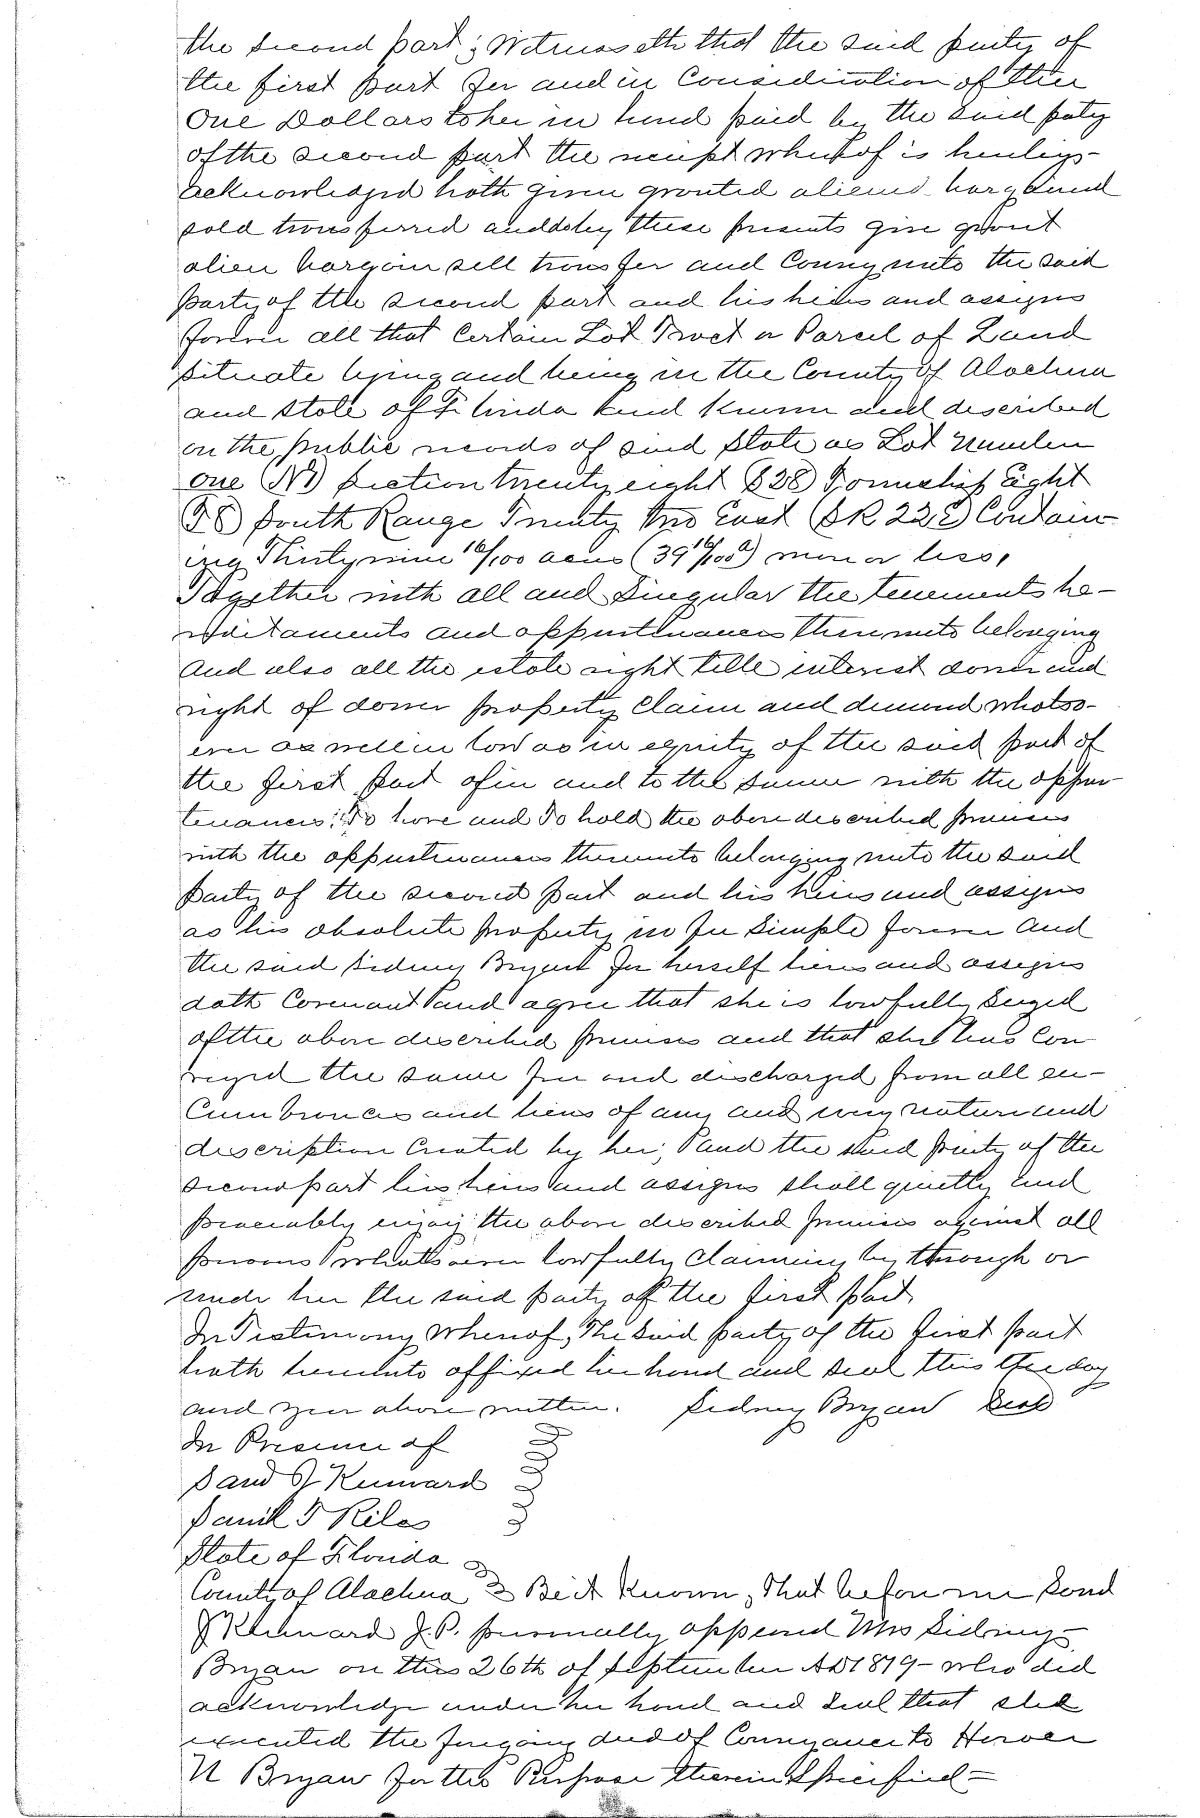 the second part; Witnesseth that the said party of
the first part for and in Consideration of the
One Dollars to her in hand paid by the said paty
of the second part the receipt whereof is hereby
acknowledged hath given granted aliened bargained
sold transferred and do by these presents give grant
alien bargain sell transfer and Convey unto the said
Party of the second part and his heirs and assigns
forever all that Certain Lot Tract or Parcel of Land
situate lying and being in the County of Alachua
and State of Florida and Known and described
on the public records of said State as Lot Number
one (N1) Section twenty eight (S28) Township Eight
(T8) South Range Twenty two East (SR 22E) Contain-
ing Thirty nine 16/100 acres (39 16/100 a) more or less,
Together with all and Singular the tenements he-
reditaments and appurtenances thereunto belonging
And also all the estate right title interest dower and
right of dower property Claim and demand whatso-
ever as well in law as in equity of the said part of
the first part of in and to the same with the appur-
tenances; To have and To hold the above described premises
with the appurtenances thereunto belonging unto the said
Party of the second part and his heirs and assigns
as his absolute property in fee Simple forever And
the said Sidney Bryant for herself heirs and assigns
doth Covenant and agree that she is lawfully Seized
of the above described premises and that she has Con-
veyed the same free and discharged from all en-
Cumbrances and liens of any and every nature and
description Created by her, and the said party of the
second part his heirs and assigns shall quietly and
peaceably enjoy the above described premises against all
persons whatsoever lawfully Claiming by through or
under her the said party of the first part
In Testimony Whereof, The Said party of the first part
hath hereunto affixed her hand and seal this the day
and year above written. Sidney Bryan Seal
In Presence of
Kennard
T Riles
State of Florida
County of Alachua Be it Known, That before me
Kennard J.P. personally appeared Mrs Sidney
Bryan on this 26th of September AD1879- who did
acknowledge under her hand and Seal that she
executed the foregoing deed of Conveyance to
N Bryan for the Purpose therein Specified-